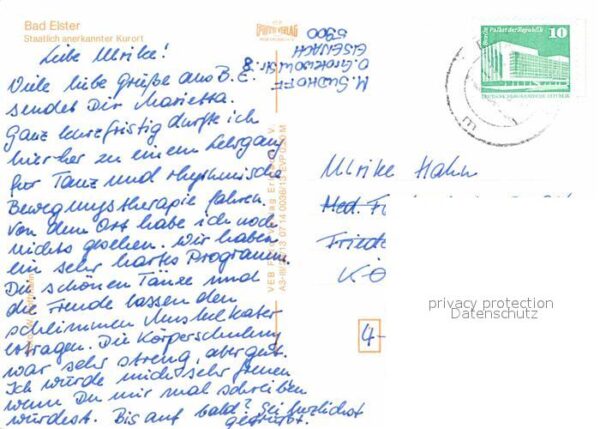 Bad Elster
Staatlich anerkannter Kurort
Liebe Ulrike!
Viele liebe Grüße aus B.E.
sendet Dir Marietta.
Ganz kurzfristig durfte ich
hierher zu einem Lehrgang
für Tanz und rhythmische
Bewegungstherapie fahren.
Von dem Ort habe ich noch
nichts gesehen. Wir haben
ein sehr hartes Programm.
Die schönen Tänze und
die Freude lassen den
schlimmen Muskelkater
ertragen. Die Körperschulung
war sehr streng, aber gut.
Ich würde mich sehr freuen
wenn Du mir mal schreiben
würdest. Bis auf bald? Sei herzlichst
gegrüßt.
VERLAG
M. SUDHOFF
5900
EISENACH
VEB
Verlag
A3
Berlin Palast der Republik
10
DEUTSCHE DEMOKRATISCHE REPUBLIK
Ulrike Hahn
Med.
Friede
privacy protection
Datenschutz
4-